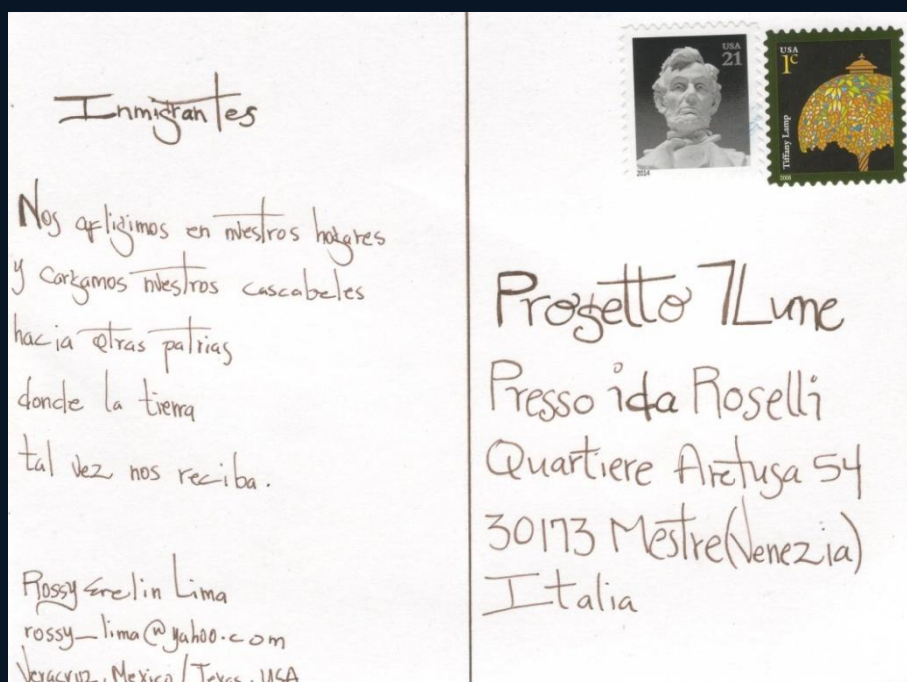 Inmigrantes
Nos afligimos en nuestros hogares
y cargamos nuestros cascabeles
hacia otras patrias
donde la tierra
tal vez nos reciba.
Rossy Evelin Lima
rossy_lima@yahoo.com
Veracruz, Mexico / Texas, USA
USA
21
2014
USA
1c
Tiffany Lamp
2008
Progetto 7Lune
Presso ida Roselli
Quartiere Aretusa 54
30173 Mestre (Venezia)
Italia